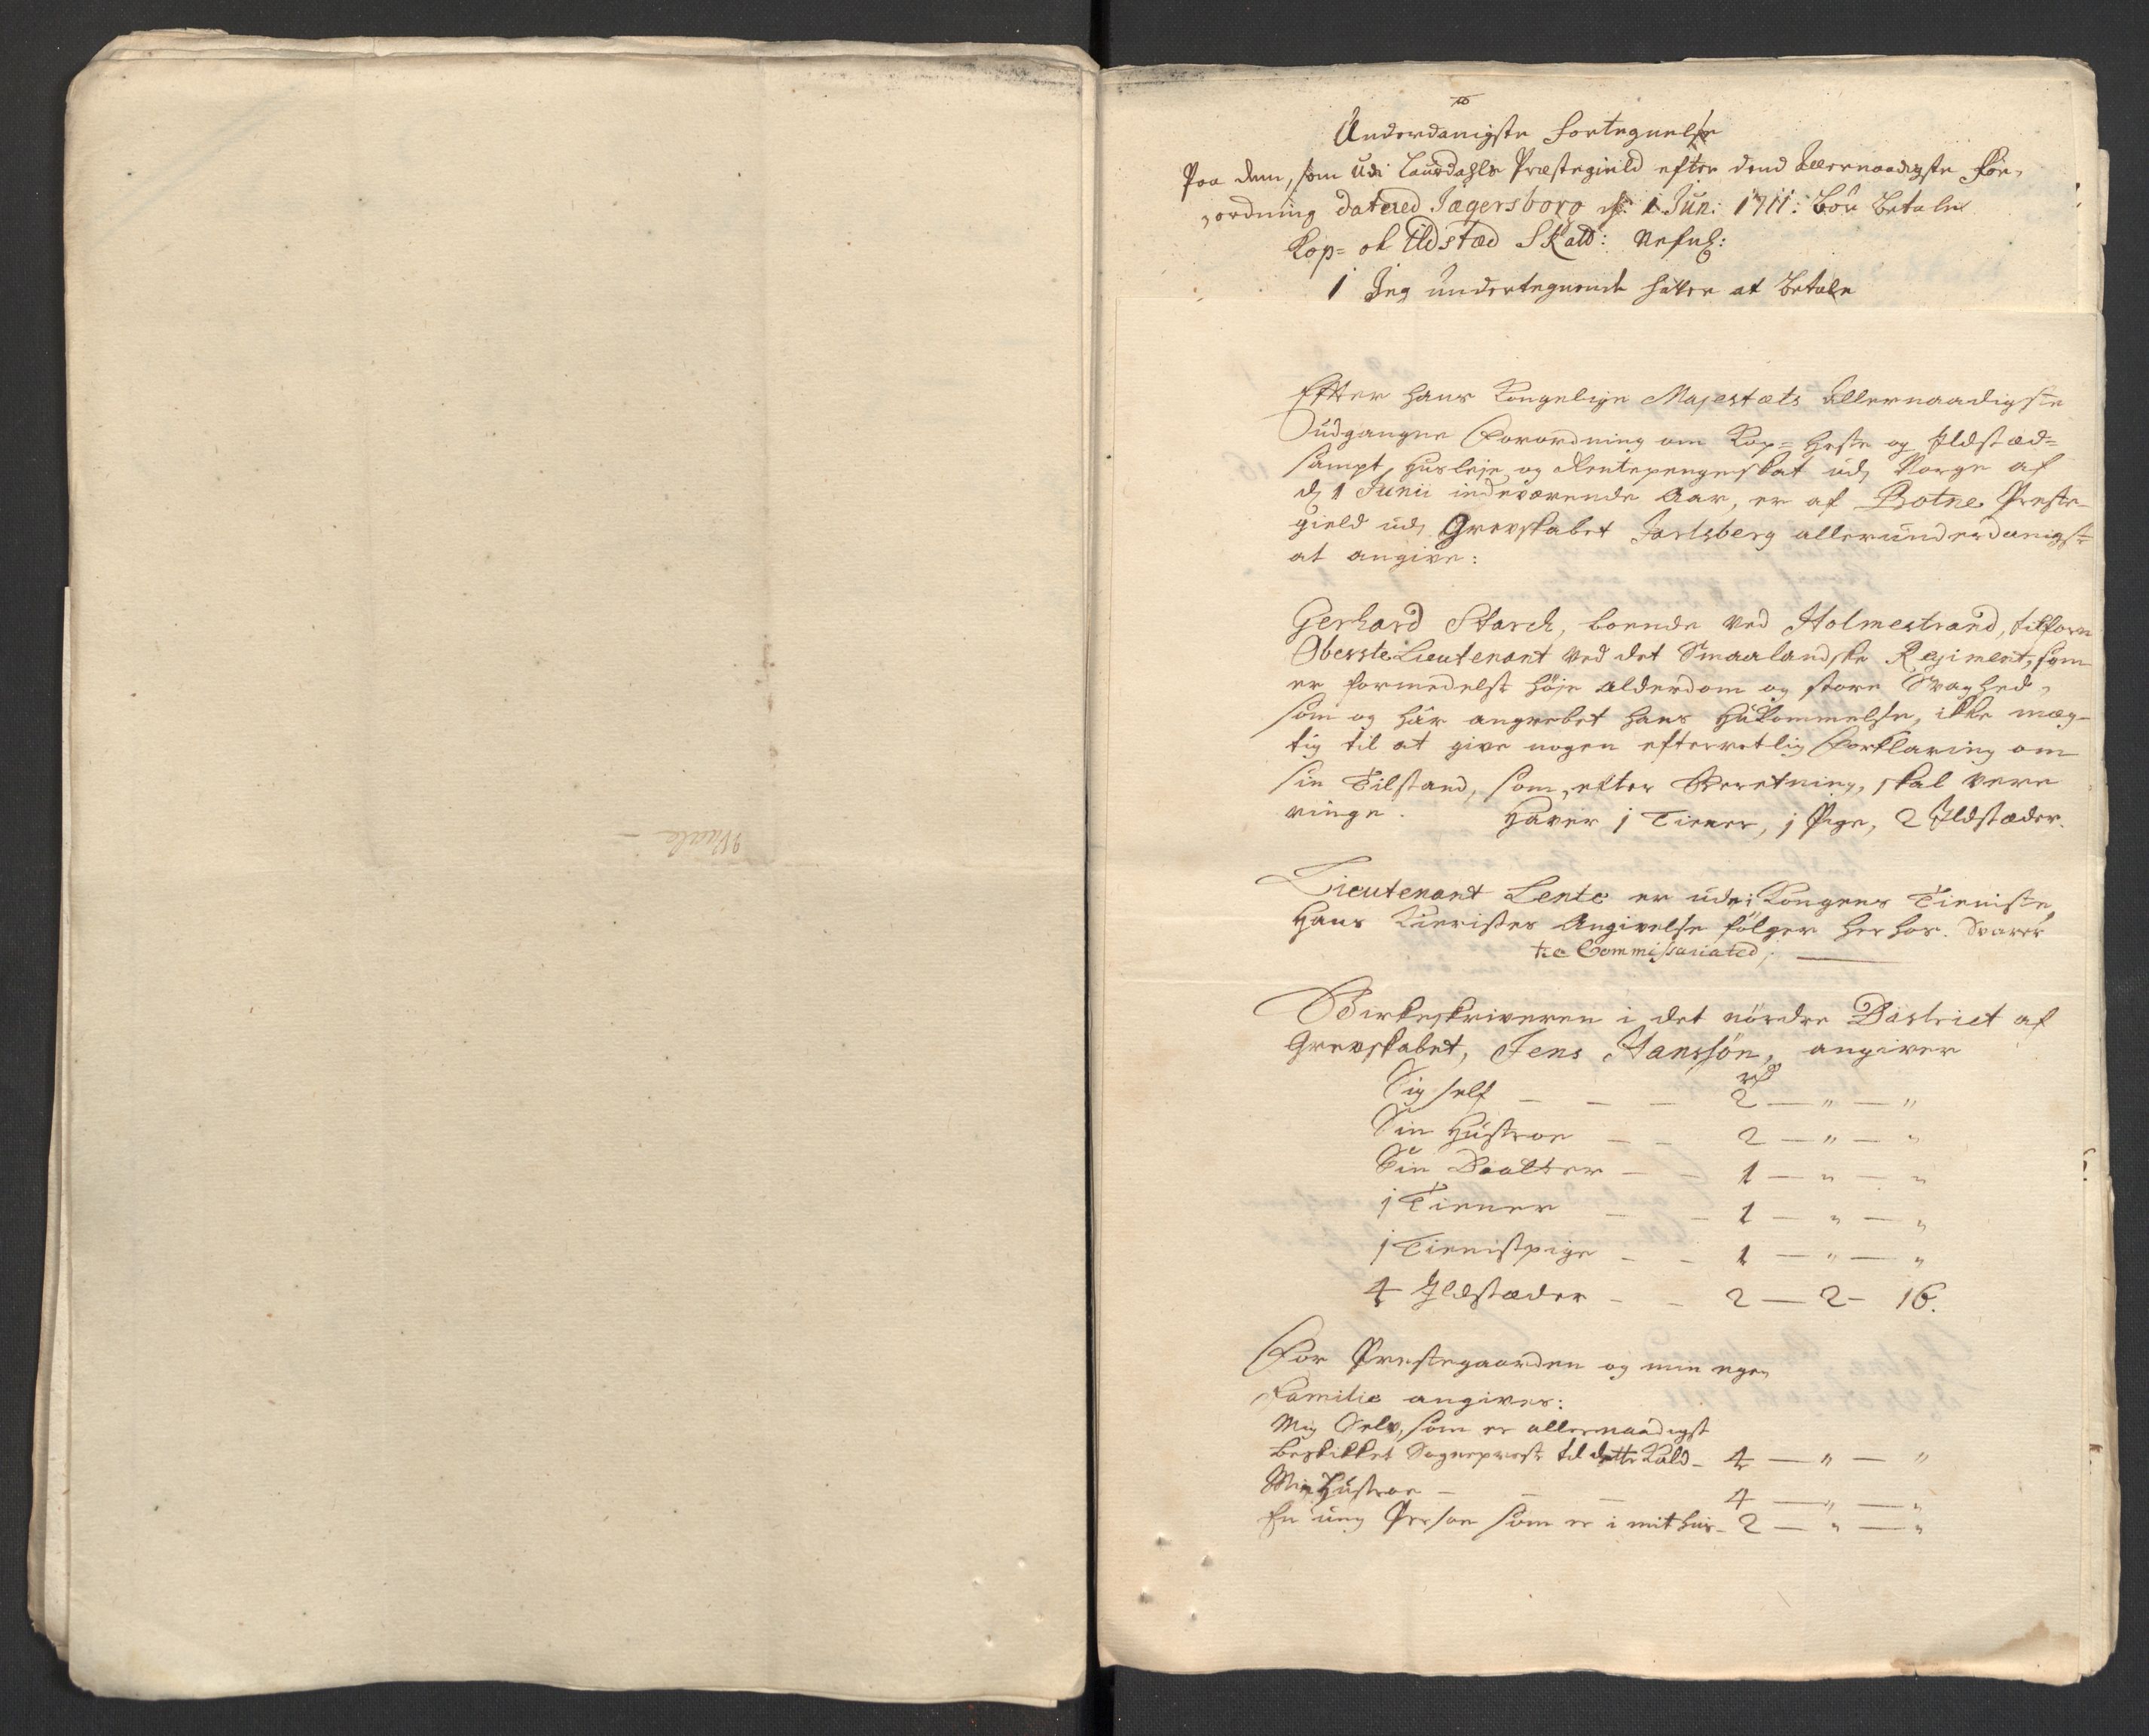 Underdanigste Fortegnelse
Paa dem, som udi Laurdahls Præstegield efter dend Allernaadigste For-
ordning datered Jægersborg d: 1 Juni 1711: bør betale
Kop= ok Ildstæd Skatt:
1 Jeg undertegnende hafver at betale
Efter hans Kongelige Majestæts allernaadigste
udgangne Forordning om Kop= Heste og Ildstæd=
sampt Husleje og Rentepengeskat udj Norge af
dj 1 Junii indeværende Aar, er af Botne Preste-
gield udj Grevskabet Jarlsberg allerunderdanigst
at angive:
Gerhard Starck, boende ved Holmestrand, tilforn
Oberste Lieutenant ved det Smaalandske Regiment, som
er formedelst høje alderdom og store Svaghed,
som og här angrebet hans Hukommelse, ikke mæg-
tig til at give nogen efterretlig Forklaring om
sin Tilstand, som, efter Beretning, skal være
ringe. Haver 1 Tiener, 1 Pige, 2 Ildstæder.
Lieutenant Lente er udi Kongens Tieniste,
Hans Kieristes Angivelse følger her hos. Svarer
til Commissariated,
Birkeskriveren i det nördre District af
Grevskabet, Jens Hanssön, angiver
rd
Sig self - - - 2 — " — "
Sin Hustroe - - 2 — " — "
Sin Daatter - - 1 — " — "
1 Tiener - - 1 — " — "
1 Tienistpige - - 1 — " — "
4 Ildstæder - - 2 — 2 - 16.
For Prestegaarden og min egen
Familie angives:
Mig Selv, som er allernaadigst
beskikket Sogneprest til dette Kald - 4 — " — "
Min Hustroe - - - 4 — " — "
En ung Person som er i mit huus - 2 — " — "